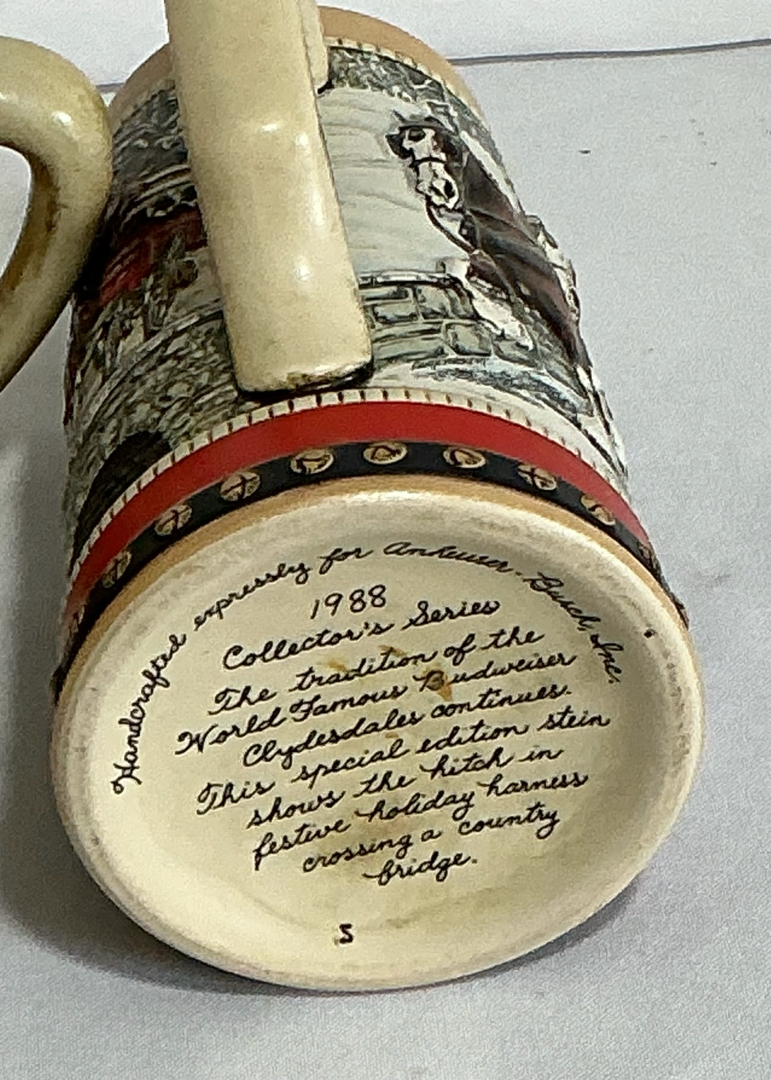 Handcrafted expressly for Anheuser-Busch, Inc.
1988
Collector's Series
The tradition of the
World Famous Budweiser
Clydesdales continues.
This special edition stein
shows the hitch in
festive holiday harness
crossing a country
bridge.
S